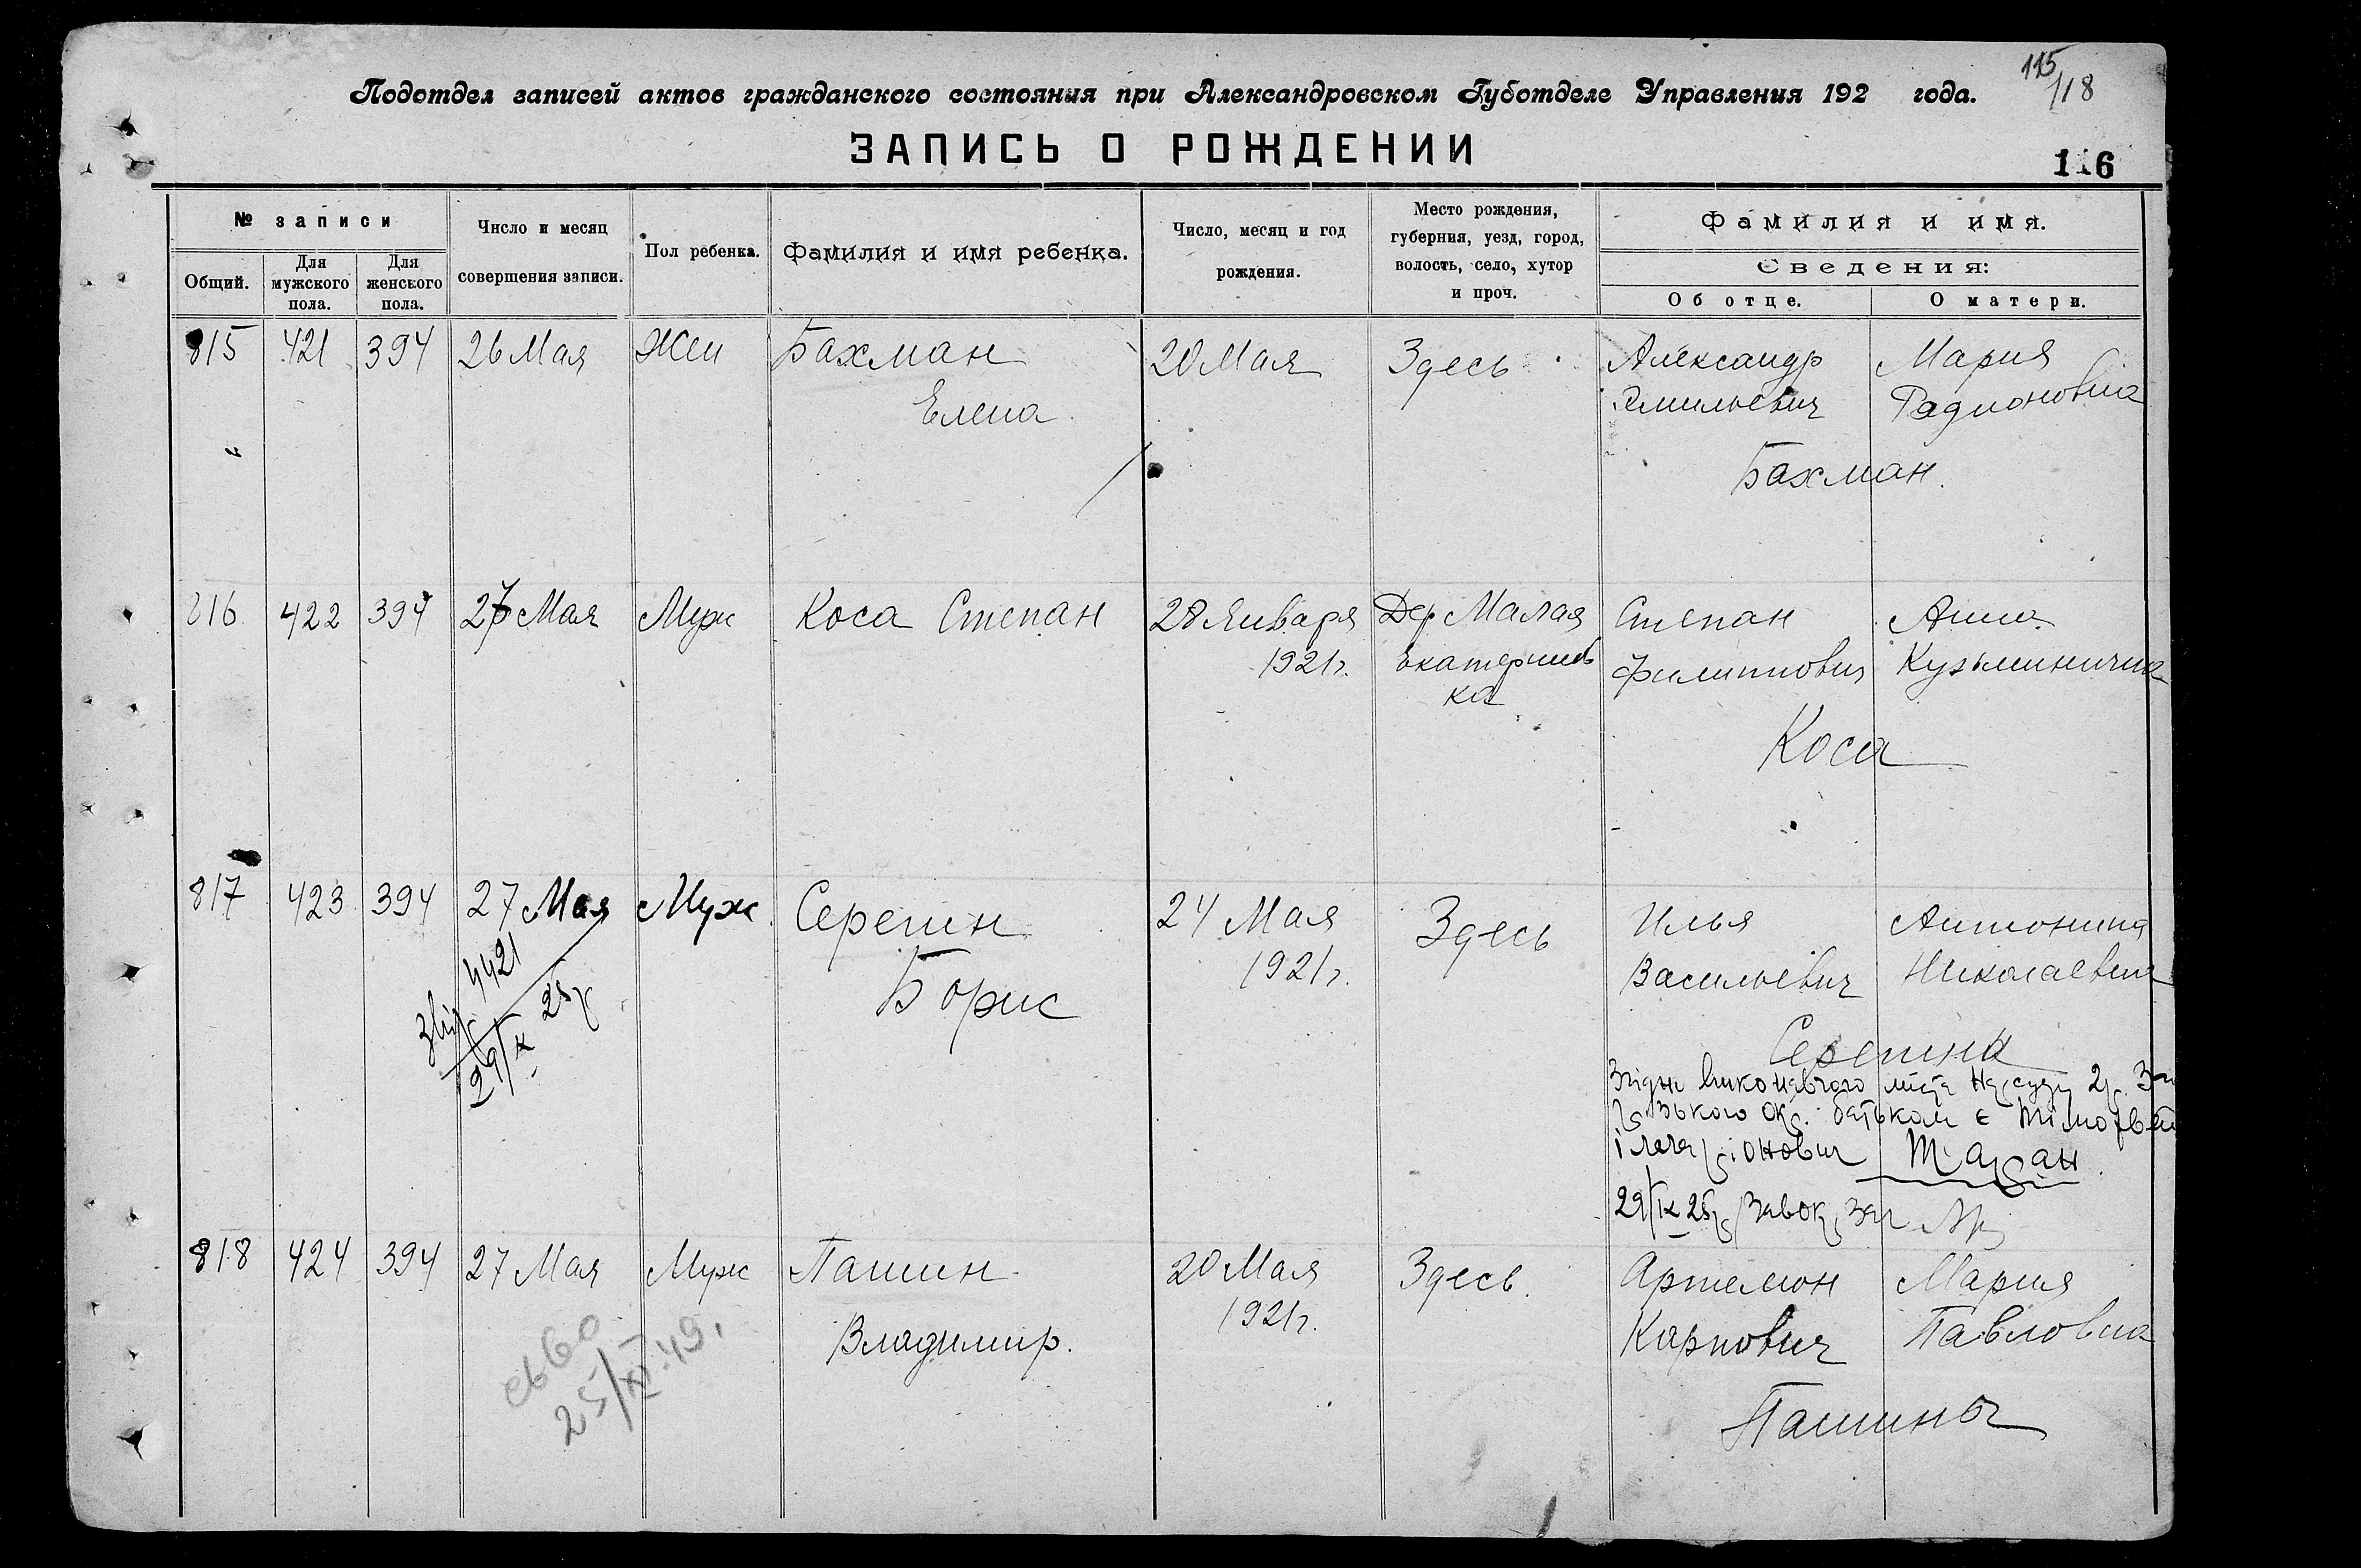 115/118
Подотдел записей актов гражданского состояния при Александровском Губотделе Управления 192 года.
ЗАПИСЬ О РОЖДЕНИИ
116
№ записи
Общий.
Для мужского пола.
Для женского пола.
Число и месяц совершения записи.
Пол ребенка.
Фамилия и имя ребенка.
Число, месяц и год рождения.
Место рождения, губерния, уезд, город, волость, село, хутор и проч.
Фамилия и имя.
Сведения:
Об отце.
О матери.
815 421 394 26 Мая Жен Бахман 20 Мая Здесь Александр Мария
Елена Эмильевич Радионовна
Бахман.
816 422 394 27 Мая Муж Коса Степан 28 Января Дер Малая Степан Анна
1921г. Екатеринов Филиппович Кузьминична
ка
Коса
817 423 394 27 Мая Муж Серепин 24 Мая Здесь Илья Антонина
Борис 1921г. Васильевич Николаевна
4421
29/IX 25р
Серепины
Згідно виконавчого листа Нарсуду 2р.
батьком є
Таран.
29/IX 25р
818 424 394 27 Мая Муж Пашин 20 Мая Здесь. Артемон Мария
Владимир. 1921г. Карпович Павловна
25/XI 49.
Пашины